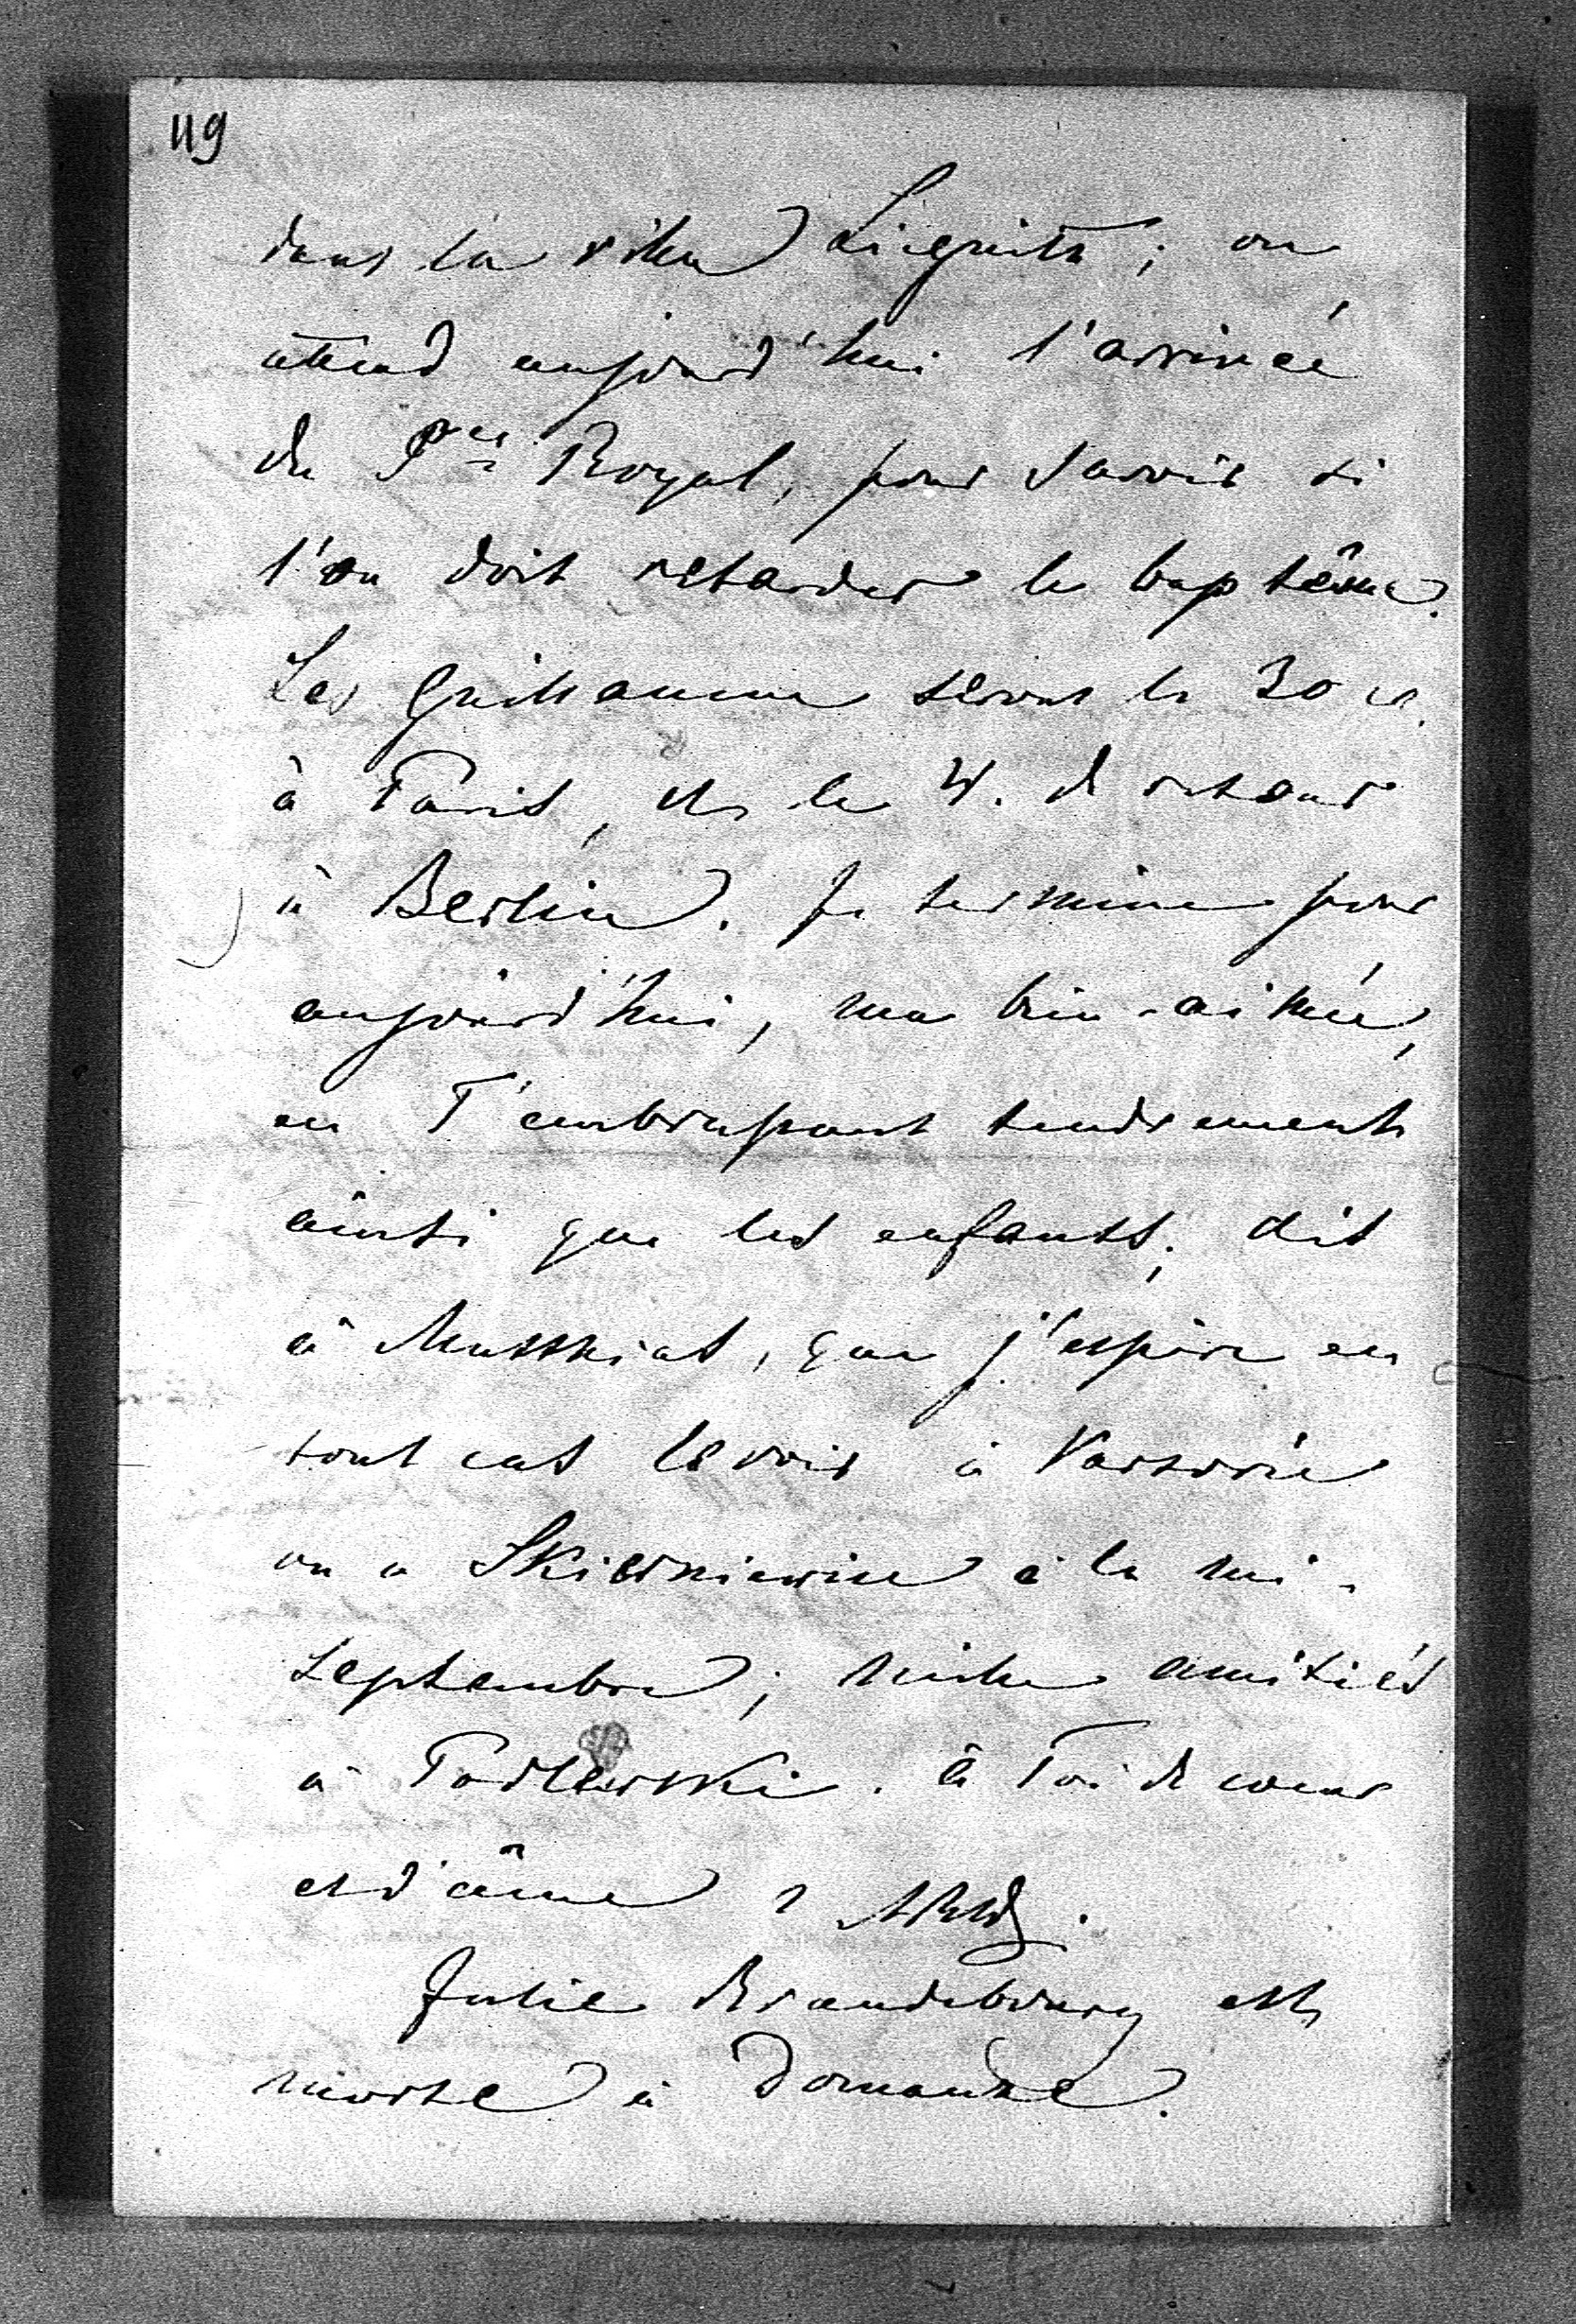 119
dans la villa Liegnitz; on
attend aujourd'hui l'arrivée
du Pce Royal, pour savoir si
l'on doit retarder le baptême.
Les Guillaume seront le 30 c.
à Paris, et le 4. de retour
à Berlin. Je termine pour
aujourd'hui, ma bien-aimée,
en T'embrassant tendrement
ainsi que les enfants; dis
à que j'espère en
tout cas le voir à Varsovie
ou a Skierniewice à la mi-
Septembre; mille amitiés
à . à Toi de coeur
et d'âme
Julie Brandebourg est
morte à Domanze.